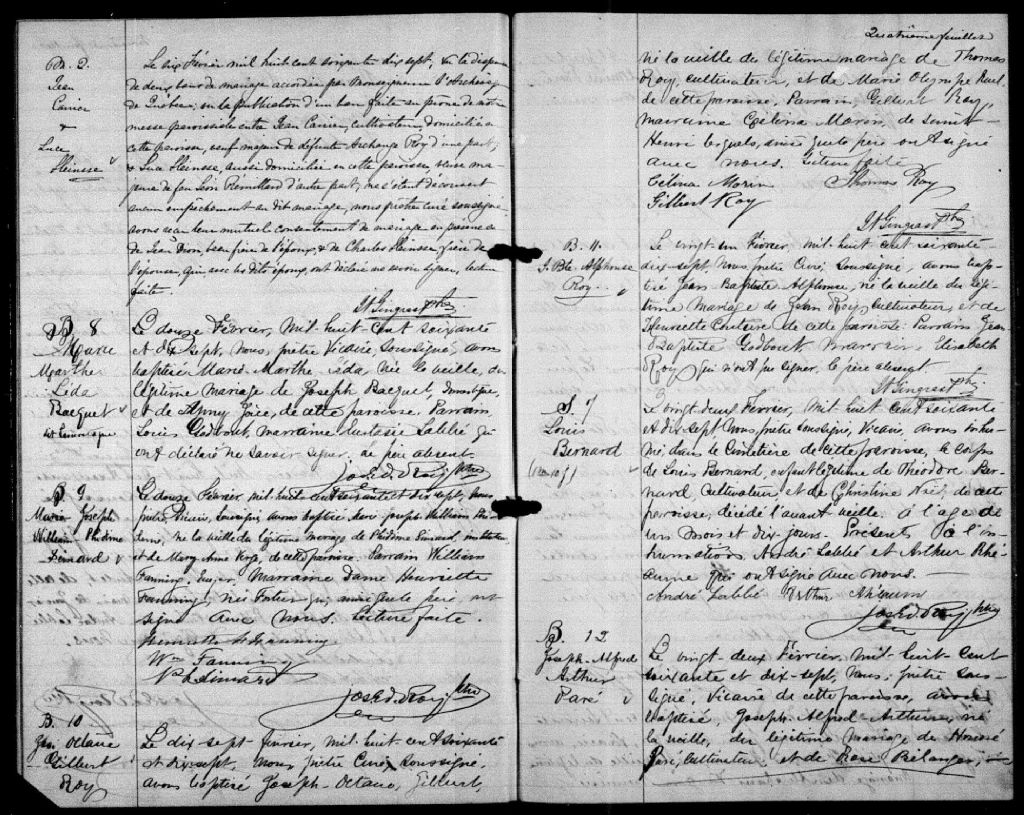 M. 2.
Jean
Carrier
&
Luce
Le six Février mil huit cent soixante dix sept, vu la dispense
de deux bans de mariage accordée par Monseigneur l'Archevêq.
de Québec, vu la publication d'un ban faite au prône de notre
messe paroissiale entre Jean Carrier, cultivateur, domicilié en
cette paroisse, veuf majeur de défunte Archange Roy d'une part,
& Luce aussi domiciliée en cette paroisse, veuve ma-
jeure de feu Léon Rémillard d'autre part, ne s'étant découvert
aucun empêchement au dit mariage, nous prêtre curé soussigné
avons reçu leur mutuel consentement de mariage en présence
de Jean Dion, beau frère de l'époux, & de Charles frère de
l'épouse, qui, avec les dits époux, ont déclaré ne savoir signer, lecture
faite.
St Gingras Ptre
B. 8
Marie
Marthe
Léda
Bacquet
dit Lamontagne
Le douze Février, mil huit cent soixante
et dix sept, nous, prêtre Vicaire, soussigné, avons
baptisé Marie Marthe Léda, née la veille, du
légitime mariage de Joseph Bacquet, domestique,
et de Joice, de cette paroisse. Parrain
Louis Godbout, marraine Eustasie Labbé qui
ont déclaré ne savoir signer. Le père absent.
Jos. Ed. Roy Ptre
B 9
Marie Joseph
William Phidime
Simard
Le douze Février, mil huit cent soixante et dix sept, nous
prêtre, Vicaire, soussigné, avons baptisé Marie Joseph William Phi-
dime, né la veille du légitime mariage de Phidime Simard, instituteur,
et de Mary Anne de cette paroisse. Parrain William
Fanning, Marraine Dame Henriette
Fanning, née Fortier qui, ainsi que le père, ont
signé avec nous. Lecture faite.
Henriette Fanning
Wm Fanning
Ph Simard
Jos. Ed. Roy Ptre
B. 10
Jos. Octave
Gilbert
Roy
Le dix-sept Février, mil huit cent soixante
et dix sept, Nous, prêtre Curé soussigné,
avons baptisé Joseph-Octave, Gilbert,
Quatrième feuillet
né la veille du légitime mariage de Thomas
Roy, cultivateur, et de Marie Olympe Ruel
de cette paroisse, Parrain, Gilbert Roy,
marraine Célina Morin, de Saint-
Henri lesquels, ainsi que le père ont signé
avec nous. Lecture faite
Célina Morin Thomas Roy
Gilbert Roy
St Gingras Ptre
B. 11.
J. Bte Alphonse
Roy
Le vingt un Février mil huit cent soixante
dix-sept, Nous prêtre Curé, soussigné, avons bap-
tisé Jean Baptiste Alphonse, né la veille du légi-
time mariage de Jean Roy, cultivateur, et de
Henriette Couture de cette paroisse. Parrain Jean
Baptiste Godbout, marraine Elisabeth
Roy qui n'ont pu signer, le père absent
St Gingras Ptre
S. 7
Louis
Bernard
Le vingt deux Février, mil huit cent soixante
et dix sept Nous prêtre soussigné, Vicaire, avons inhu-
mé, dans le Cimetière de cette paroisse, le corps
de Louis Bernard, enfant légitime de Théodore Ber-
nard, cultivateur, et de Christine de cette
paroisse, décédé l'avant veille, à l'age de
un mois et dix jours. Présents, à l'in-
humation, André Labbé et Arthur Rhé-
aume qui ont signé avec nous. —
André Labbé Arthur
Jos. Ed. Roy Ptre
B. 12
Joseph-Alfred
Arthur
Paré
Le vingt-deux Février, mil-huit-cent
soixante et dix-sept, Nous, prêtre sous-
signé, Vicaire de cette paroisse, avons
baptisé, Joseph-Alfred-Arthur, né
la veille, du légitime mariage de Honoré
Paré, cultivateur, et de Rose Bélanger,